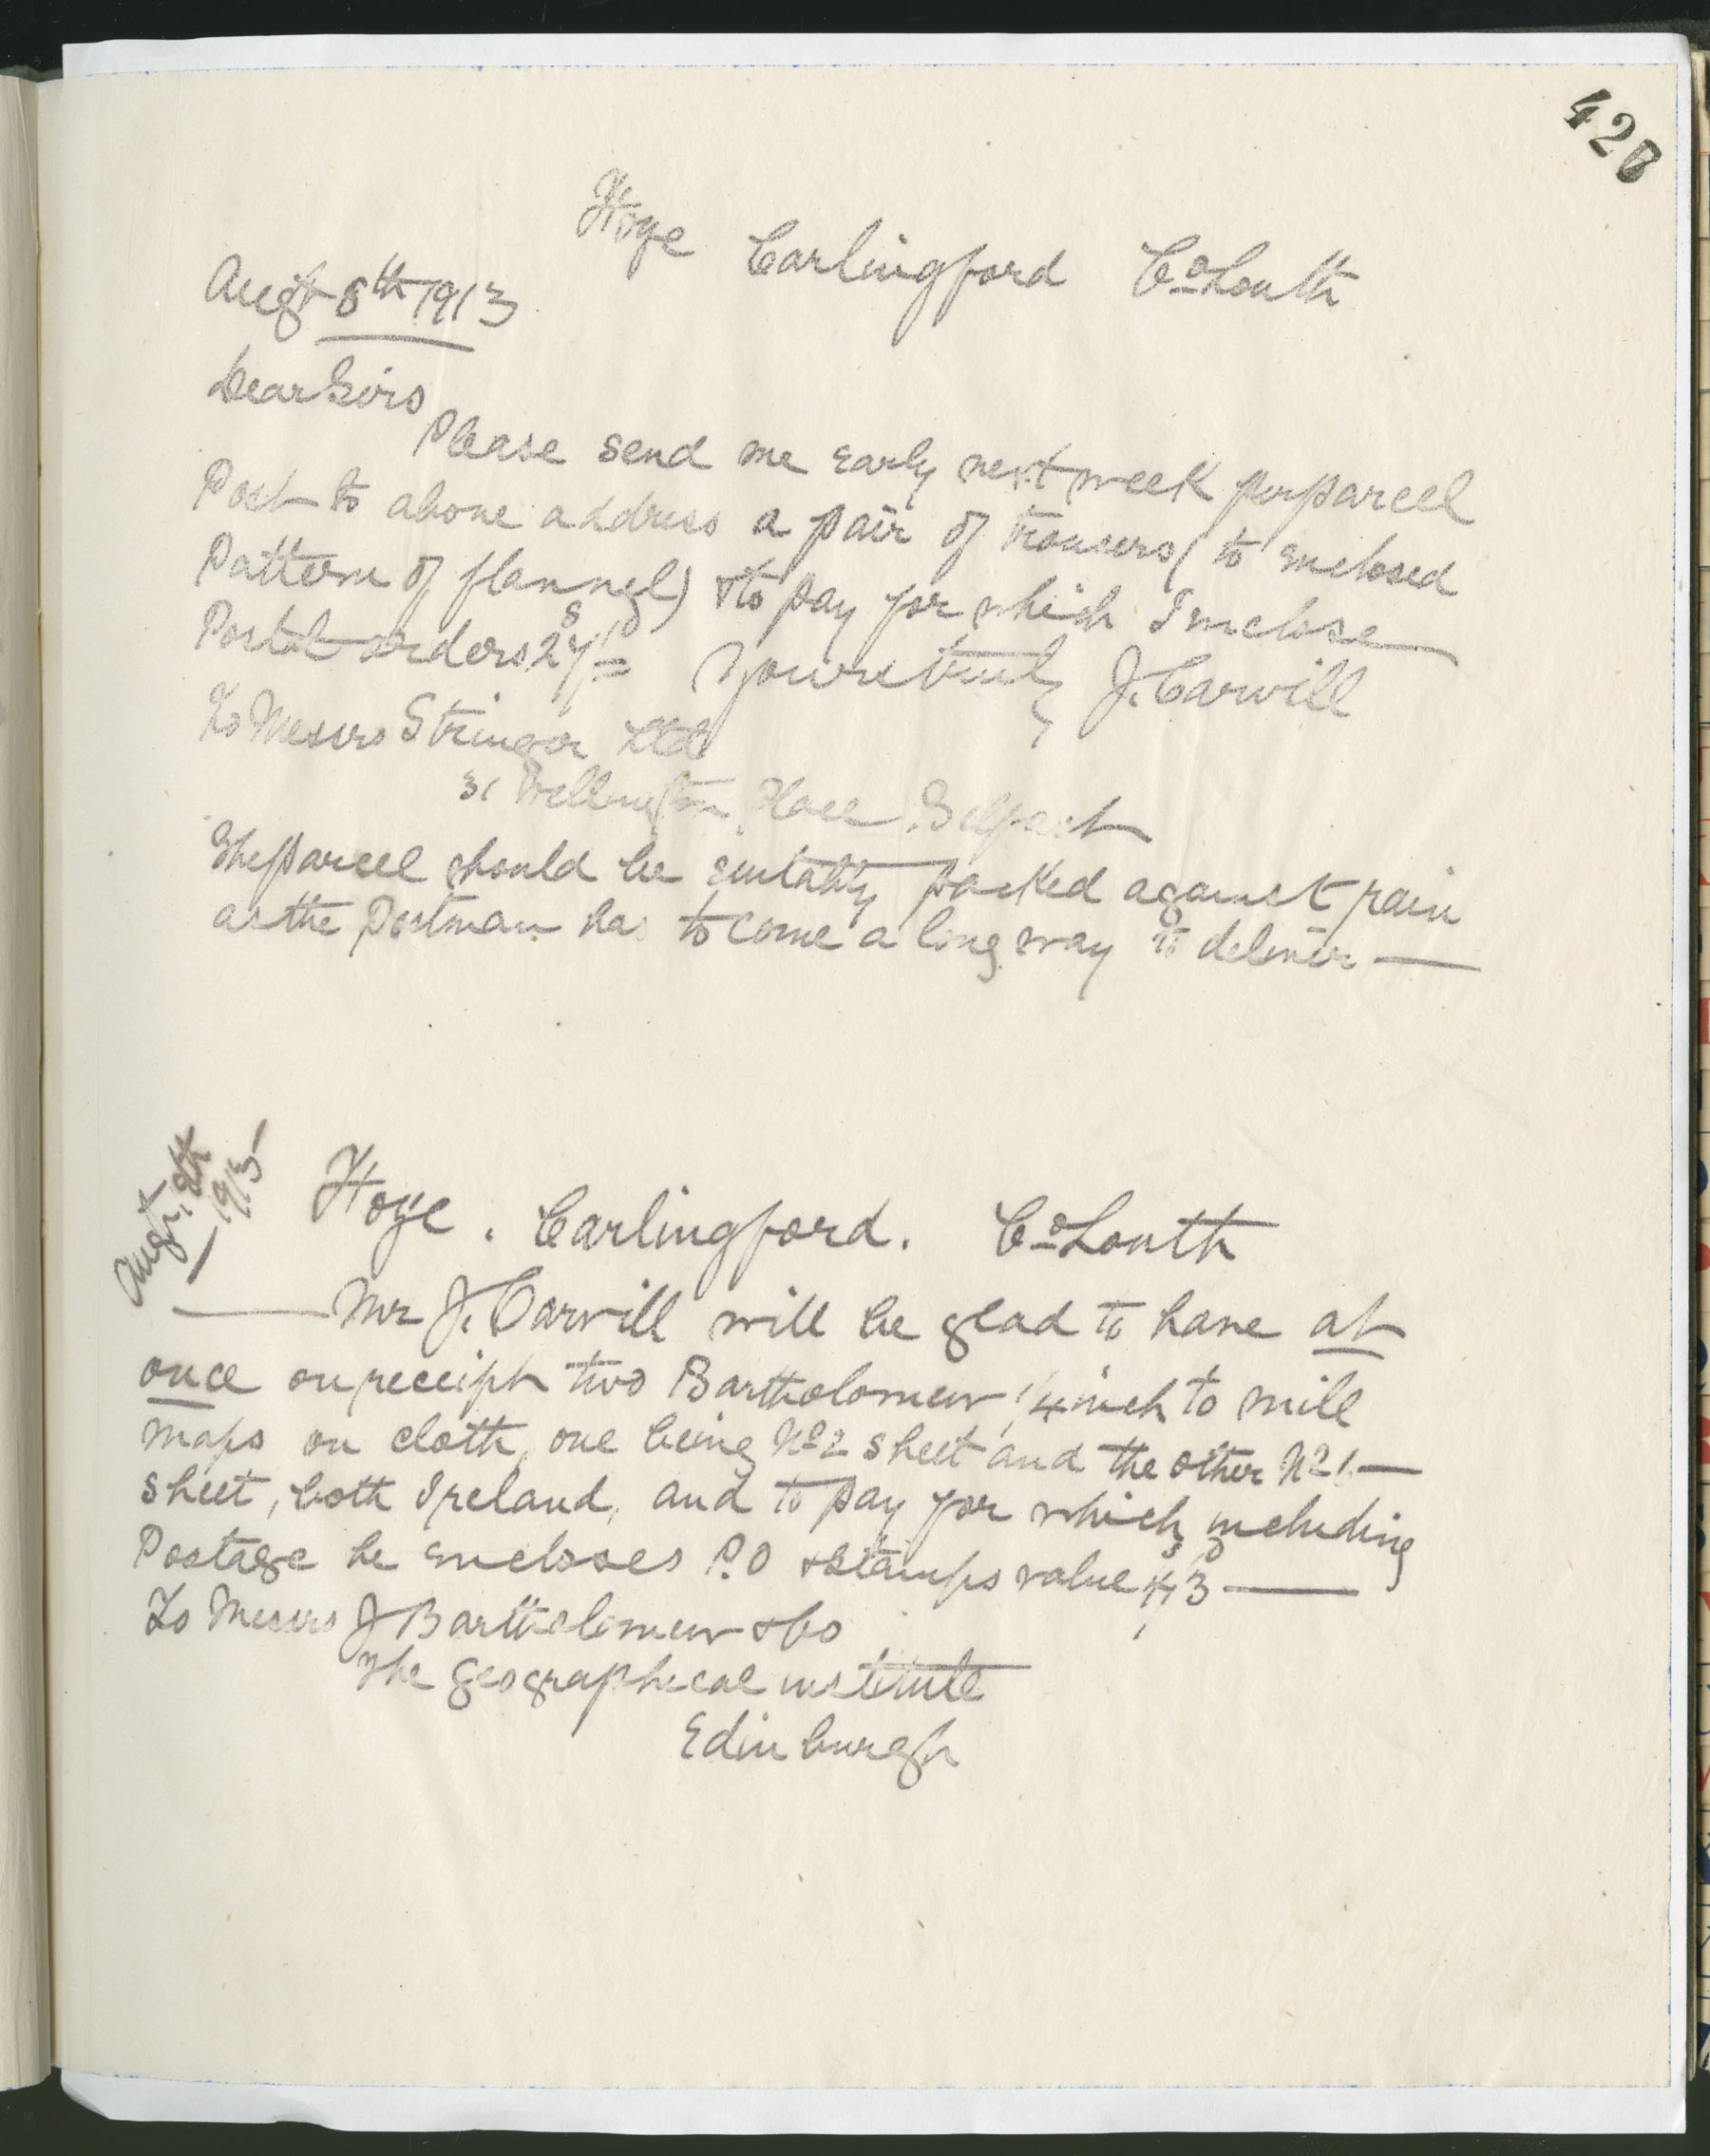 428
Hoye Carlingford Co Louth
Augt 8th 1913
Dear Sirs
Please send me early next week per parcel
Post to above address a pair of trousers (to enclosed
Pattern of flannel) & to pay for which I enclose
Postal orders 27/= Yours truly J. Carvill
To Messrs Stringer Ltd
31 Wellington Place Belfast
The parcel should be suitably packed against rain
as the Postman has to come a long way to deliver —
Augt. 8th 1913
Hoye. Carlingford. Co Louth
Mr J. Carvill will be glad to have at
once on receipt two Bartholomew 1/4 inch to mile
maps on cloth, one being No 2 sheet and the other No 1. —
sheet, both Ireland, and to pay for which, including
Postage he encloses P.O & Stamps value 4/3 —
To Messrs J Bartholomew & Co
The geographical institute
Edinburgh